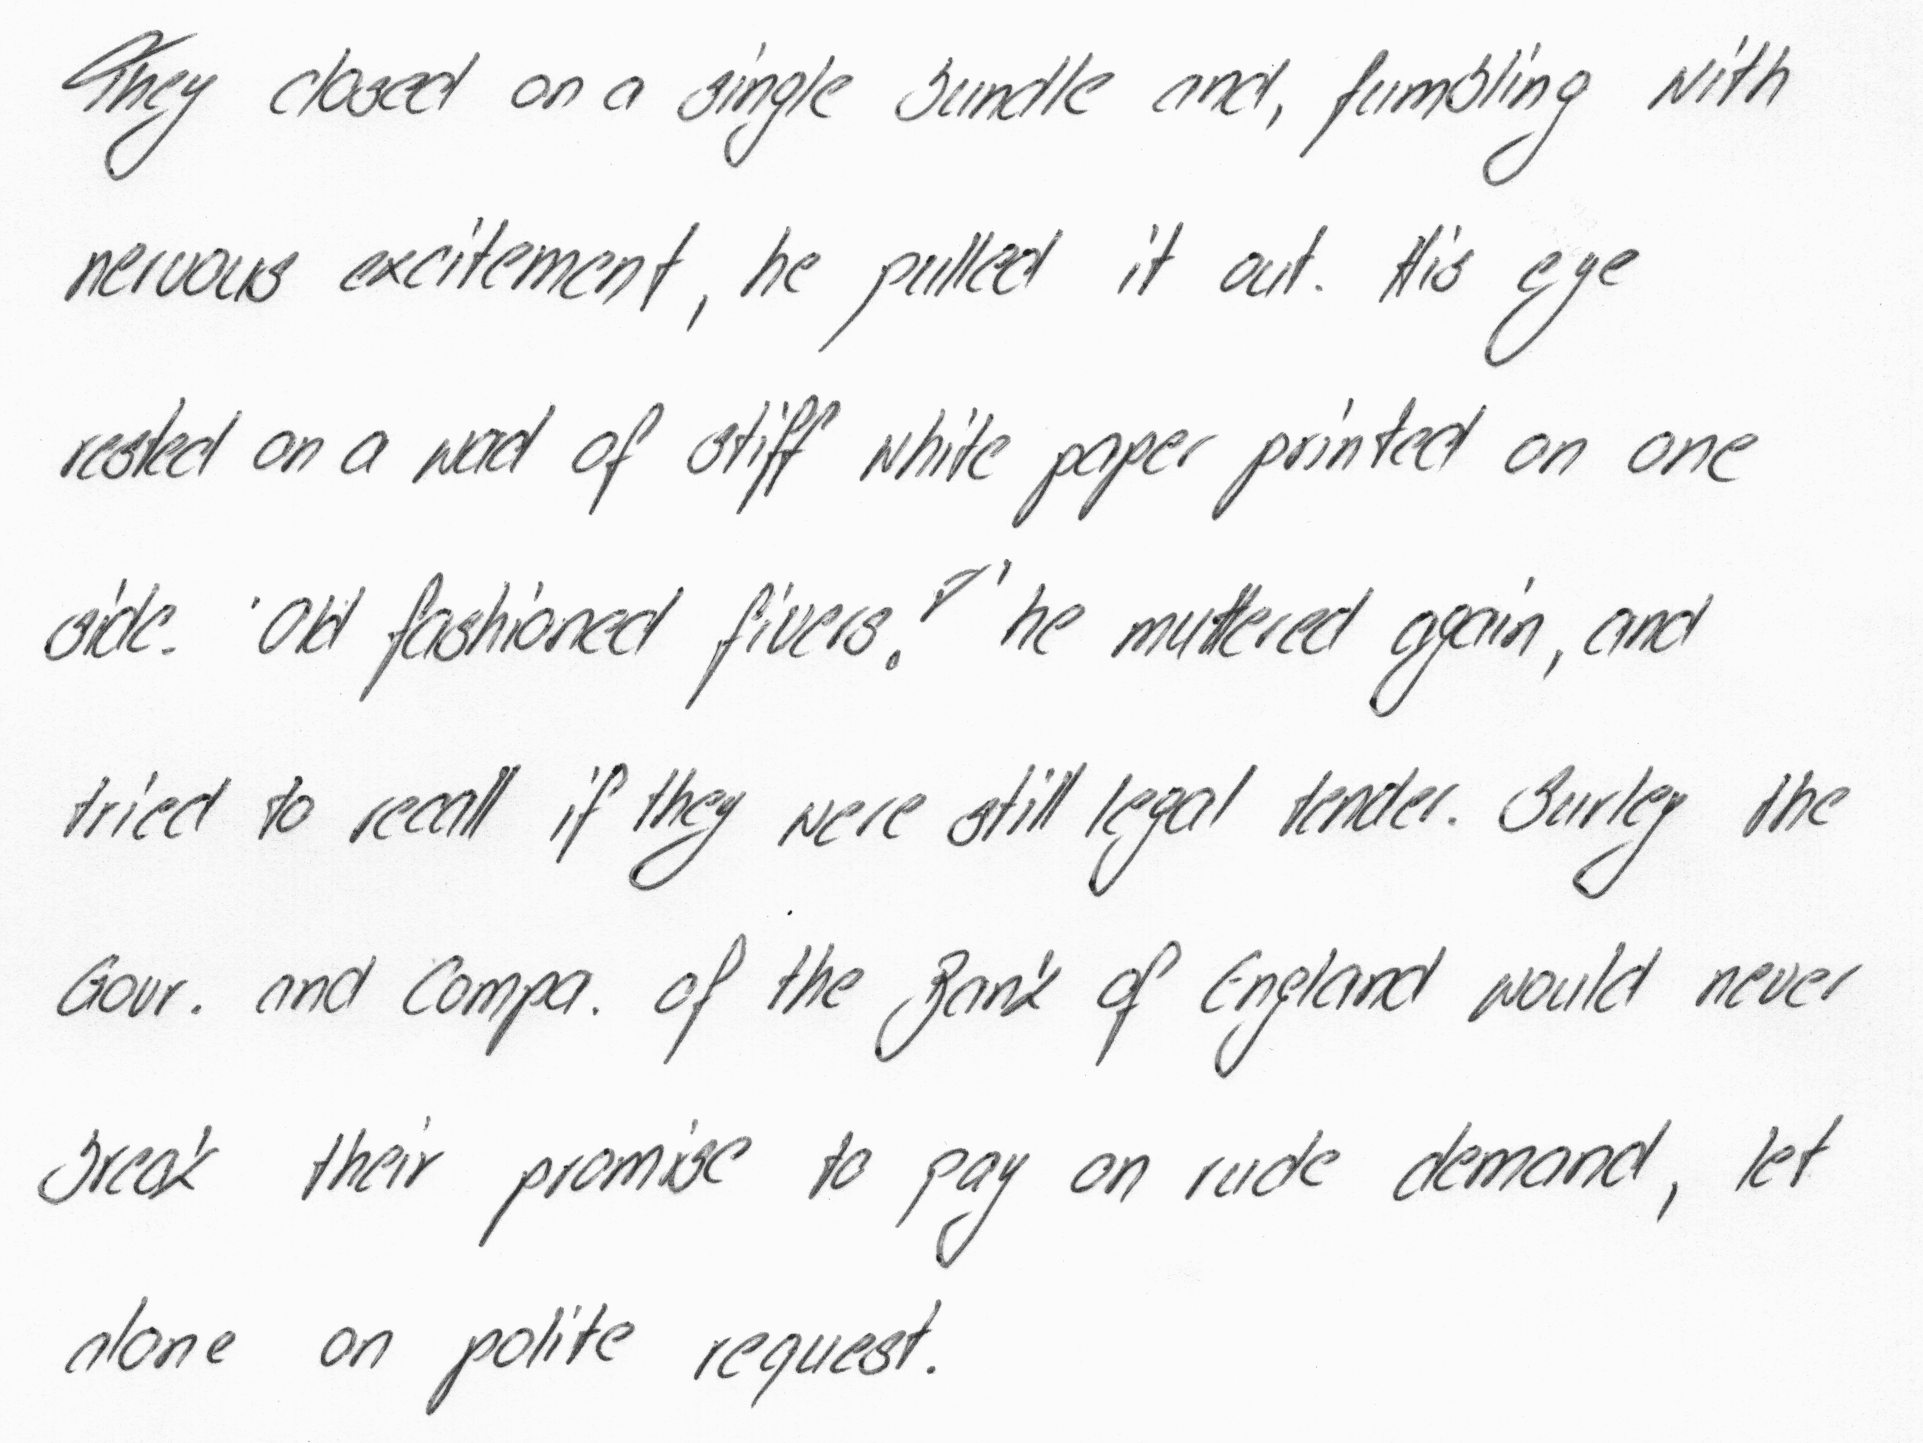 They closed on a single bundle and, fumbling with
nervous excitement, he pulled it out. His eye
rested on a wad of stiff white paper printed on one
side. 'Old fashioned fivers?' he muttered again, and
tried to recall if they were still legal tender. Surley the
Gouv. and Compa. of the Bank of England would never
break their promise to pay on rude demand, let
alone on polite request.